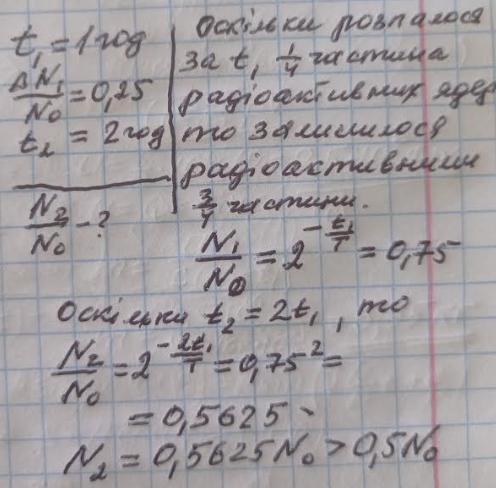 t₁ = 1 год
ΔN₁/N₀ = 0,25
t₂ = 2 год
N₂/N₀ - ?
Оскільки розпалося
за t₁ 1/4 частина
радіоактивних ядер
то залишилося
радіоактивними
3/4 частини.
N₁/N₀ = 2^(-t₁/T) = 0,75
Оскільки t₂ = 2t₁, то
N₂/N₀ = 2^(-2t₁/T) = 0,75² =
= 0,5625
N₂ = 0,5625N₀ > 0,5N₀